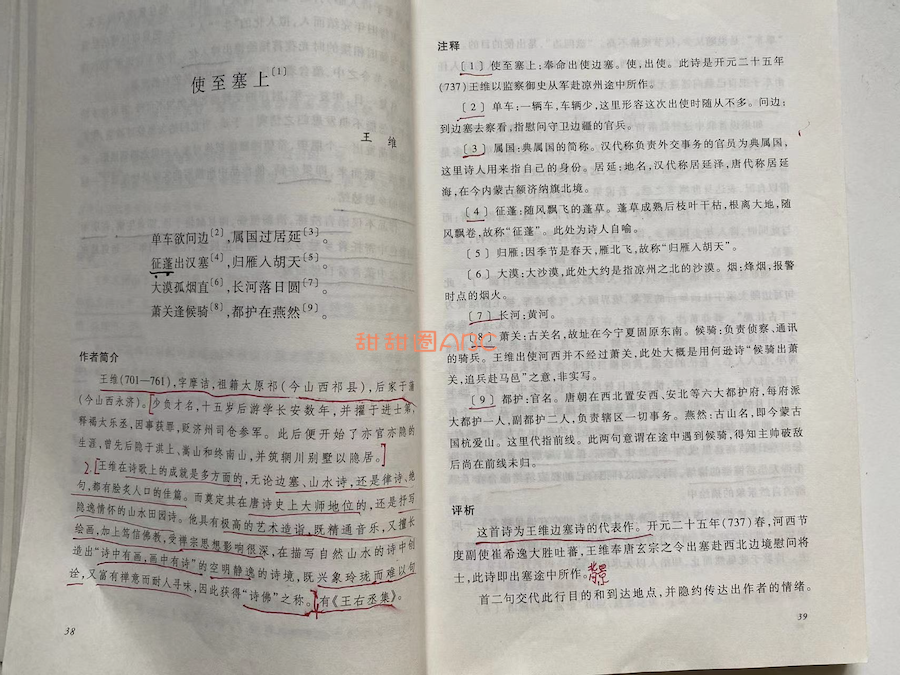 使至塞上[1]
王 维
单车欲问边[2],属国过居延[3]。
征蓬出汉塞[4],归雁入胡天[5]。
大漠孤烟直[6],长河落日圆[7]。
萧关逢候骑[8],都护在燕然[9]。
作者简介
王维(701—761),字摩诘,祖籍太原祁(今山西祁县),后家于蒲
(今山西永济)。少负才名,十五岁后游学长安数年,并擢于进士第、
释褐太乐丞,因事获罪,贬济州司仓参军。此后便开始了亦官亦隐的
生涯,曾先后隐于淇上、嵩山和终南山,并筑辋川别墅以隐居。
2.王维在诗歌上的成就是多方面的,无论边塞、山水诗,还是律诗、绝
句,都有脍炙人口的佳篇。而奠定其在唐诗史上大师地位的,还是抒写
隐逸情怀的山水田园诗。他具有极高的艺术造诣,既精通音乐,又擅长
绘画,加上笃信佛教,受禅宗思想影响很深,在描写自然山水的诗中创
造出“诗中有画,画中有诗”的空明静逸的诗境,既兴象玲珑而难以句
诠,又富有禅意而耐人寻味,因此获得“诗佛”之称。有《王右丞集》。
38
注释
〔1〕使至塞上:奉命出使边塞。使,出使。此诗是开元二十五年
(737)王维以监察御史从军赴凉州途中所作。
〔2〕单车:一辆车,车辆少,这里形容这次出使时随从不多。问边:
到边塞去察看,指慰问守卫边疆的官兵。
〔3〕属国:典属国的简称。汉代称负责外交事务的官员为典属国,
这里诗人用来指自己的身份。居延:地名,汉代称居延泽,唐代称居延
海,在今内蒙古额济纳旗北境。
〔4〕征蓬:随风飘飞的蓬草。蓬草成熟后枝叶干枯,根离大地,随
风飘卷,故称“征蓬”。此处为诗人自喻。
〔5〕归雁:因季节是春天,雁北飞,故称“归雁入胡天”。
〔6〕大漠:大沙漠,此处大约是指凉州之北的沙漠。烟:烽烟,报警
时点的烟火。
〔7〕长河:黄河。
〔8〕萧关:古关名,故址在今宁夏固原东南。候骑:负责侦察、通讯
的骑兵。王维出使河西并不经过萧关,此处大概是用何逊诗“候骑出萧
关,追兵赴马邑”之意,非实写。
〔9〕都护:官名。唐朝在西北置安西、安北等六大都护府,每府派
大都护一人,副都护二人,负责辖区一切事务。燕然:古山名,即今蒙古
国杭爱山。这里代指前线。此两句意谓在途中遇到候骑,得知主帅破敌
后尚在前线未归。
评析
这首诗为王维边塞诗的代表作。开元二十五年(737)春,河西节
度副使崔希逸大胜吐蕃,王维奉唐玄宗之令出塞赴西北边境慰问将
士,此诗即出塞途中所作。背景
首二句交代此行目的和到达地点,并隐约传达出作者的情绪。
39
甜甜圈ANC